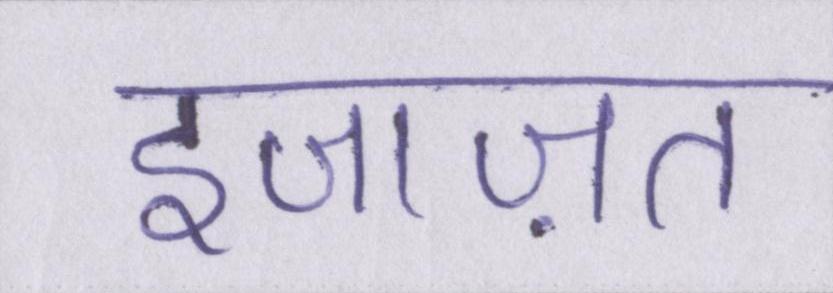 इजाज़त